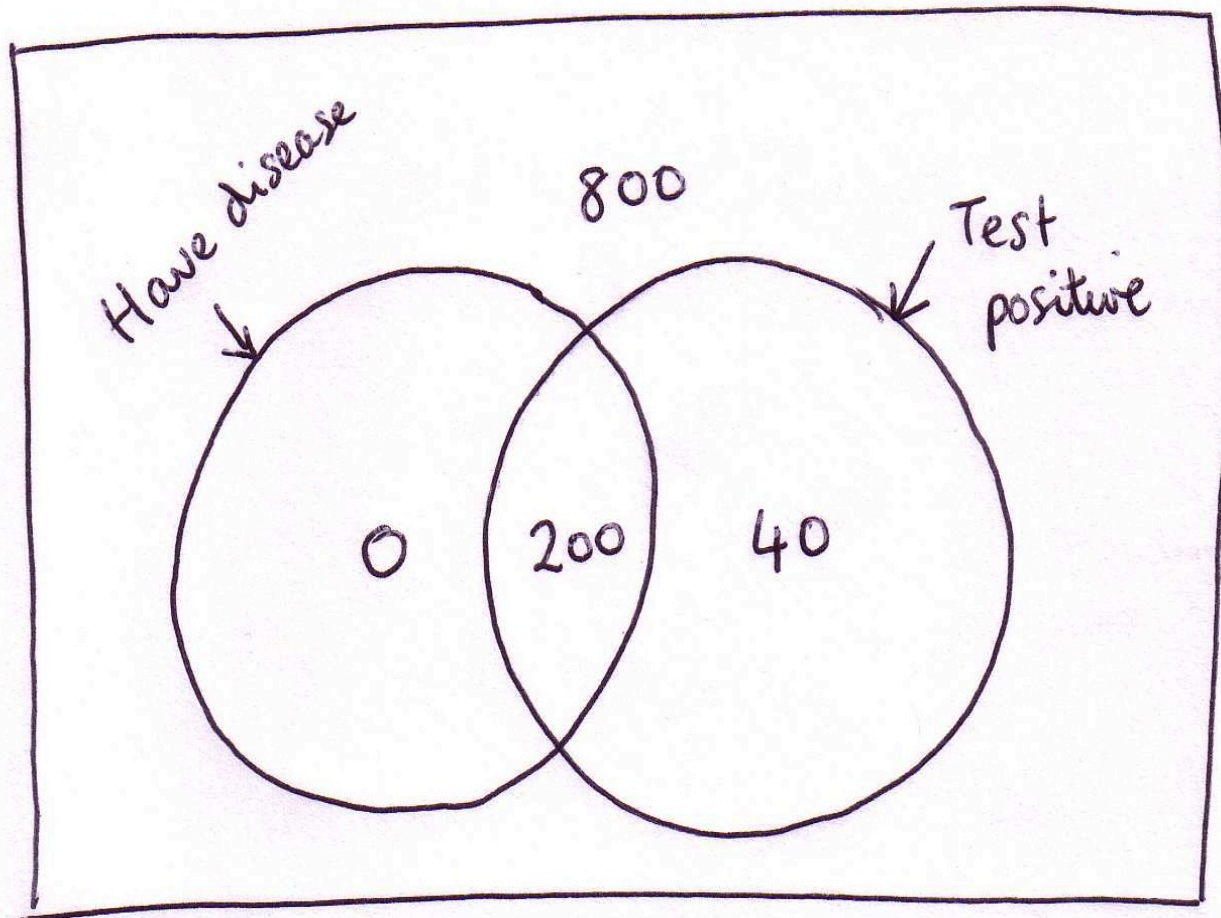 Have disease
800
Test
positive
0
200
40